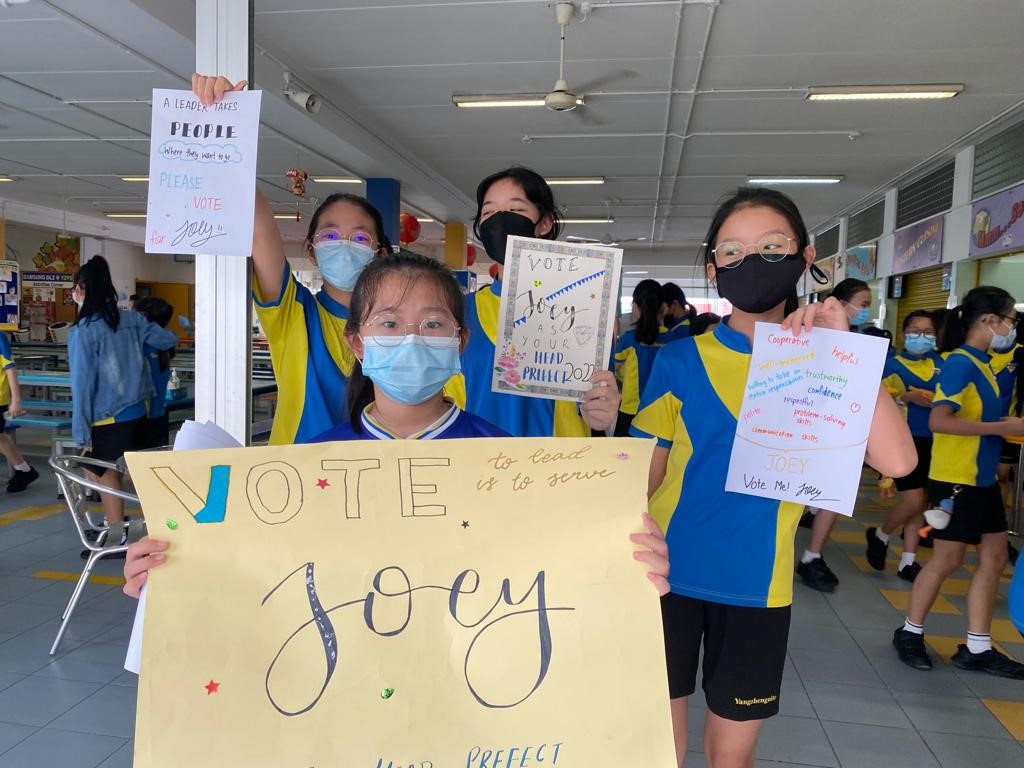 A LEADER TAKES
PEOPLE
Where they want to go
PLEASE
VOTE
for Joey!!
VOTE
Joey
AS
YOUR
HEAD
PREFECT 2022
Cooperative helpful
well-mannered
willing to take on trustworthy
extra responsibilities confidence
respectful
polite problem-solving
skills
communication skills
JOEY
Vote Me! Joey
VOTE to lead
is to serve
Joey
HEAD PREFECT
Yangzhengnite
SAMSUNG DLZ @ YZPS